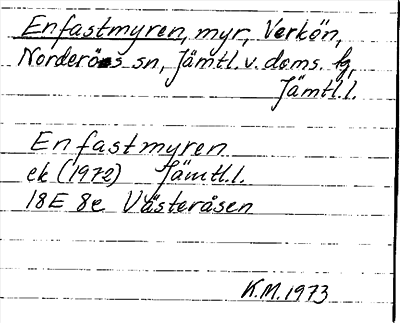 Enfastmyren, myr, Verkön,
Norderöns sn, Jämtl. v. doms. lg,
Jämtl. l.
Enfastmyren
ek (1972) Jämtl. l.
18E 8e Västeråsen
K.M. 1973